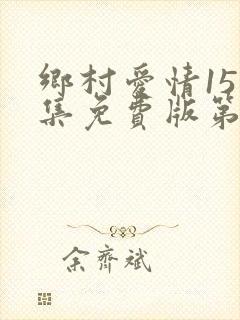 鄉村愛情15
集免費版第
余齊斌